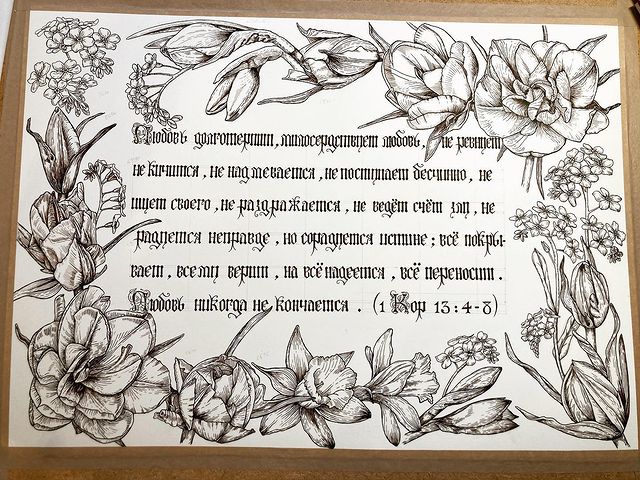 Любовь долготерпит, милосердствует любовь, не ревнует
не кичится, не надмевается, не поступает бесчинно, не
ищет своего, не раздражается, не ведёт счёт злу, не
радуется неправде, но сорадуется истине; всё покры-
вает, всему верит, на всё надеется, всё переносит.
Любовь никогда не кончается. (1 Кор 13:4-8)